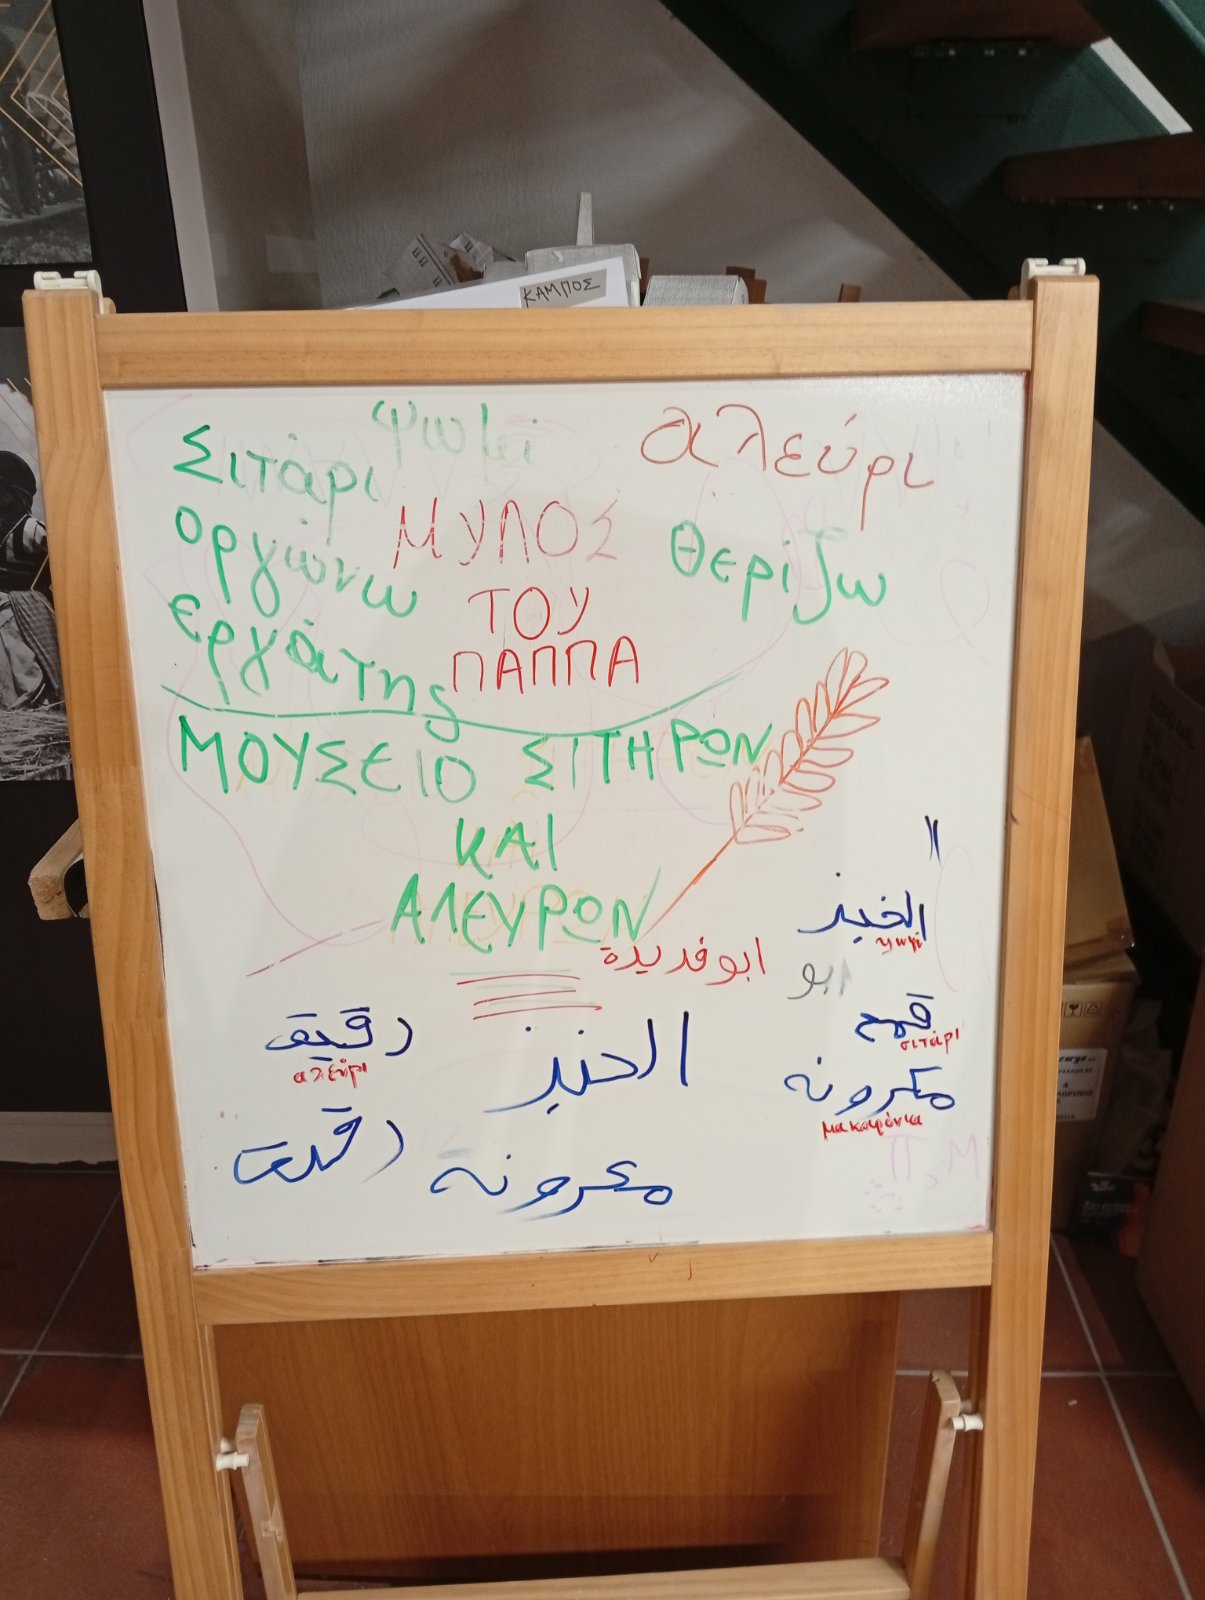 ΚΑΜΠΟΣ
ψωμί
αλεύρι
Σιτάρι
οργώνω
εργάτης
ΜΥΛΟΣ
ΤΟΥ
ΠΑΠΠΑ
θερίζω
ΜΟΥΣΕΙΟ ΣΙΤΗΡΩΝ
ΚΑΙ
ΑΛΕΥΡΩΝ
الخبز
ψωμί
ابوفديدة
ابو
قمح
σιτάρι
دقيق
αλεύρι
الخبز
مكرونه
μακαρόνια
مكرونه